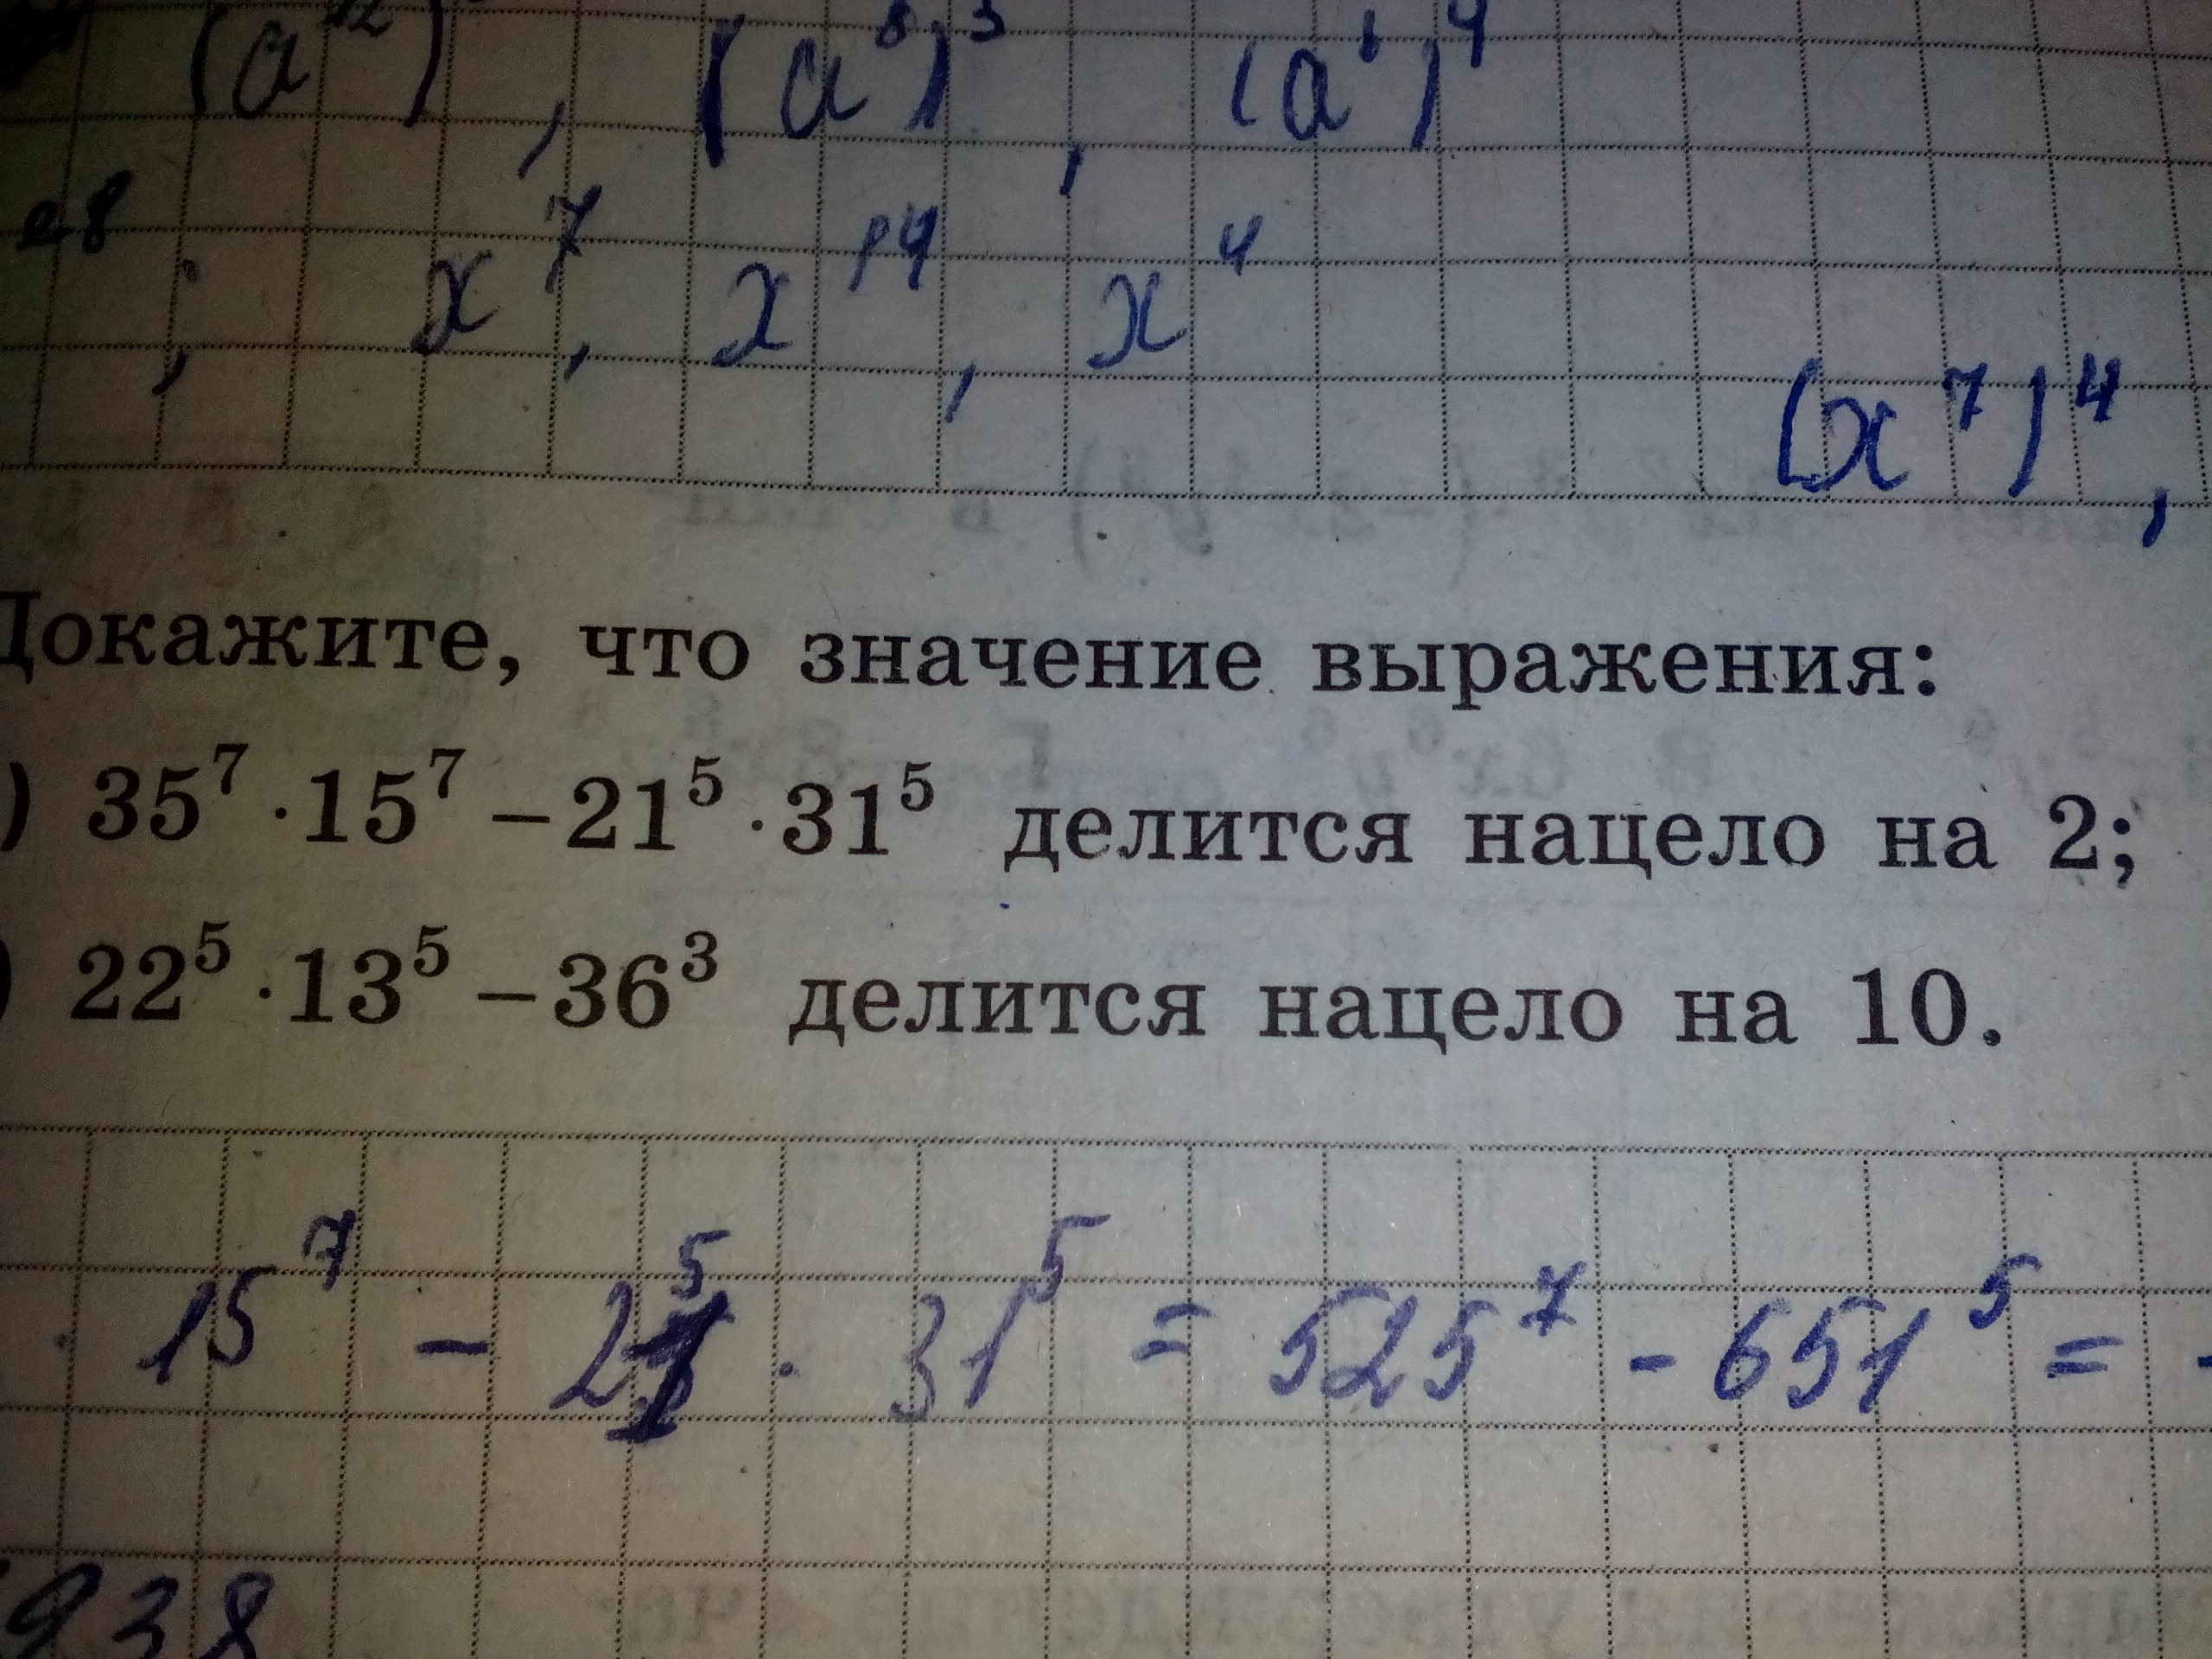 (a¹²) , (a⁸)³ , (a⁶)⁴
28 ; x⁷ , x¹⁴ , x⁴
(x⁷)⁴ ,
Докажите, что значение выражения:
) 35⁷ · 15⁷ – 21⁵ · 31⁵ делится нацело на 2;
) 22⁵ · 13⁵ – 36³ делится нацело на 10.
· 15⁷ – 21⁵ · 31⁵ = 525⁷ - 651⁵ = -
938